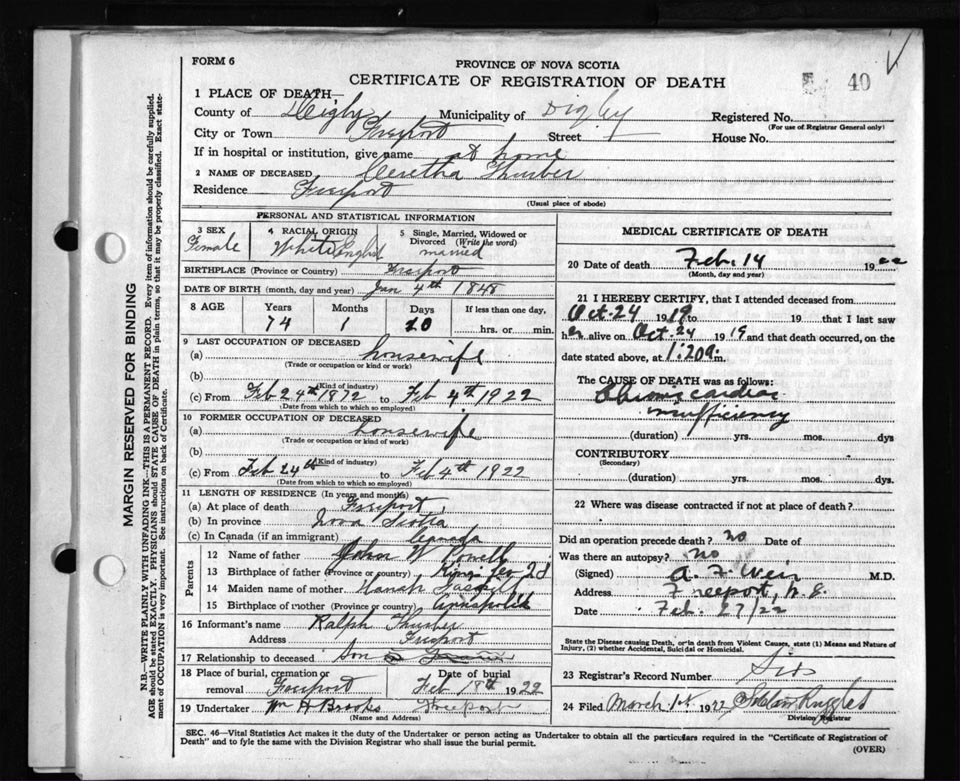 FORM 6
PROVINCE OF NOVA SCOTIA
CERTIFICATE OF REGISTRATION OF DEATH
40
1 PLACE OF DEATH—
County of Digby Municipality of Digby Registered No.
(For use of Registrar General only)
City or Town Freeport Street House No.
If in hospital or institution, give name at home
2 NAME OF DECEASED Thurber
Residence Freeport
(Usual place of abode)
PERSONAL AND STATISTICAL INFORMATION
3 SEX Female
4 RACIAL ORIGIN White English
5 Single, Married, Widowed or Divorced (Write the word) married
BIRTHPLACE (Province or Country) Freeport
DATE OF BIRTH (month, day and year) Jan 4th 1848
8 AGE Years 74 Months 1 Days 10 If less than one day, hrs. or min.
9 LAST OCCUPATION OF DECEASED
(a) housewife
(Trade or occupation or kind of work)
(b)
(Kind of industry)
(c) From Feb 24th 1872 to Feb 4th 1922
(Date from which to which so employed)
10 FORMER OCCUPATION OF DECEASED
(a) housewife
(Trade or occupation or kind of work)
(b)
(Kind of industry)
(c) From Feb 24th to Feb 4th 1922
(Date from which to which so employed)
11 LENGTH OF RESIDENCE (In years and months)
(a) At place of death Freeport
(b) In province Nova Scotia
(c) In Canada (if an immigrant) Canada
Parents
12 Name of father John W Powell
13 Birthplace of father (Province or country)
14 Maiden name of mother Hanah
15 Birthplace of mother (Province or country) Annapolis
16 Informant's name Ralph Thurber
Address Freeport
17 Relationship to deceased Son
18 Place of burial, cremation or removal Freeport Date of burial Feb 18th 1922
19 Undertaker Wm H Brooks Freeport
(Name and Address)
MEDICAL CERTIFICATE OF DEATH
20 Date of death Feb. 14 1922
(Month, day and year)
21 I HEREBY CERTIFY, that I attended deceased from
Oct. 24 1919 to 19 that I last saw
her alive on Oct. 24 1919 and that death occurred, on the
date stated above, at 1:20 a m.
The CAUSE OF DEATH was as follows:
Chronic cardiac
insufficiency
(duration) yrs. mos. dys
CONTRIBUTORY
(Secondary)
(duration) yrs. mos. dys.
22 Where was disease contracted if not at place of death?
Did an operation precede death? no Date of
Was there an autopsy? no
(Signed) A. F. Weir M.D.
Address Freeport, N.S.
Date Feb. 27/22
State the Disease causing Death, or in death from Violent Causes, state (1) Means and Nature of
Injury, (2) whether Accidental, Suicidal or Homicidal.
23 Registrar's Record Number
24 Filed March 1st 1922 Ruggles
Division Registrar
SEC. 46—Vital Statistics Act makes it the duty of the Undertaker or person acting as Undertaker to obtain all the particulars required in the "Certificate of Registration of
Death" and to fyle the same with the Division Registrar who shall issue the burial permit.
(OVER)
MARGIN RESERVED FOR BINDING
N.B.—WRITE PLAINLY WITH UNFADING INK—THIS IS A PERMANENT RECORD. Every item of information should be carefully supplied.
AGE should be stated EXACTLY. PHYSICIANS should STATE CAUSE OF DEATH in plain terms, so that it may be properly classified. Exact state-
ment of OCCUPATION is very important. See instructions on back of Certificate.